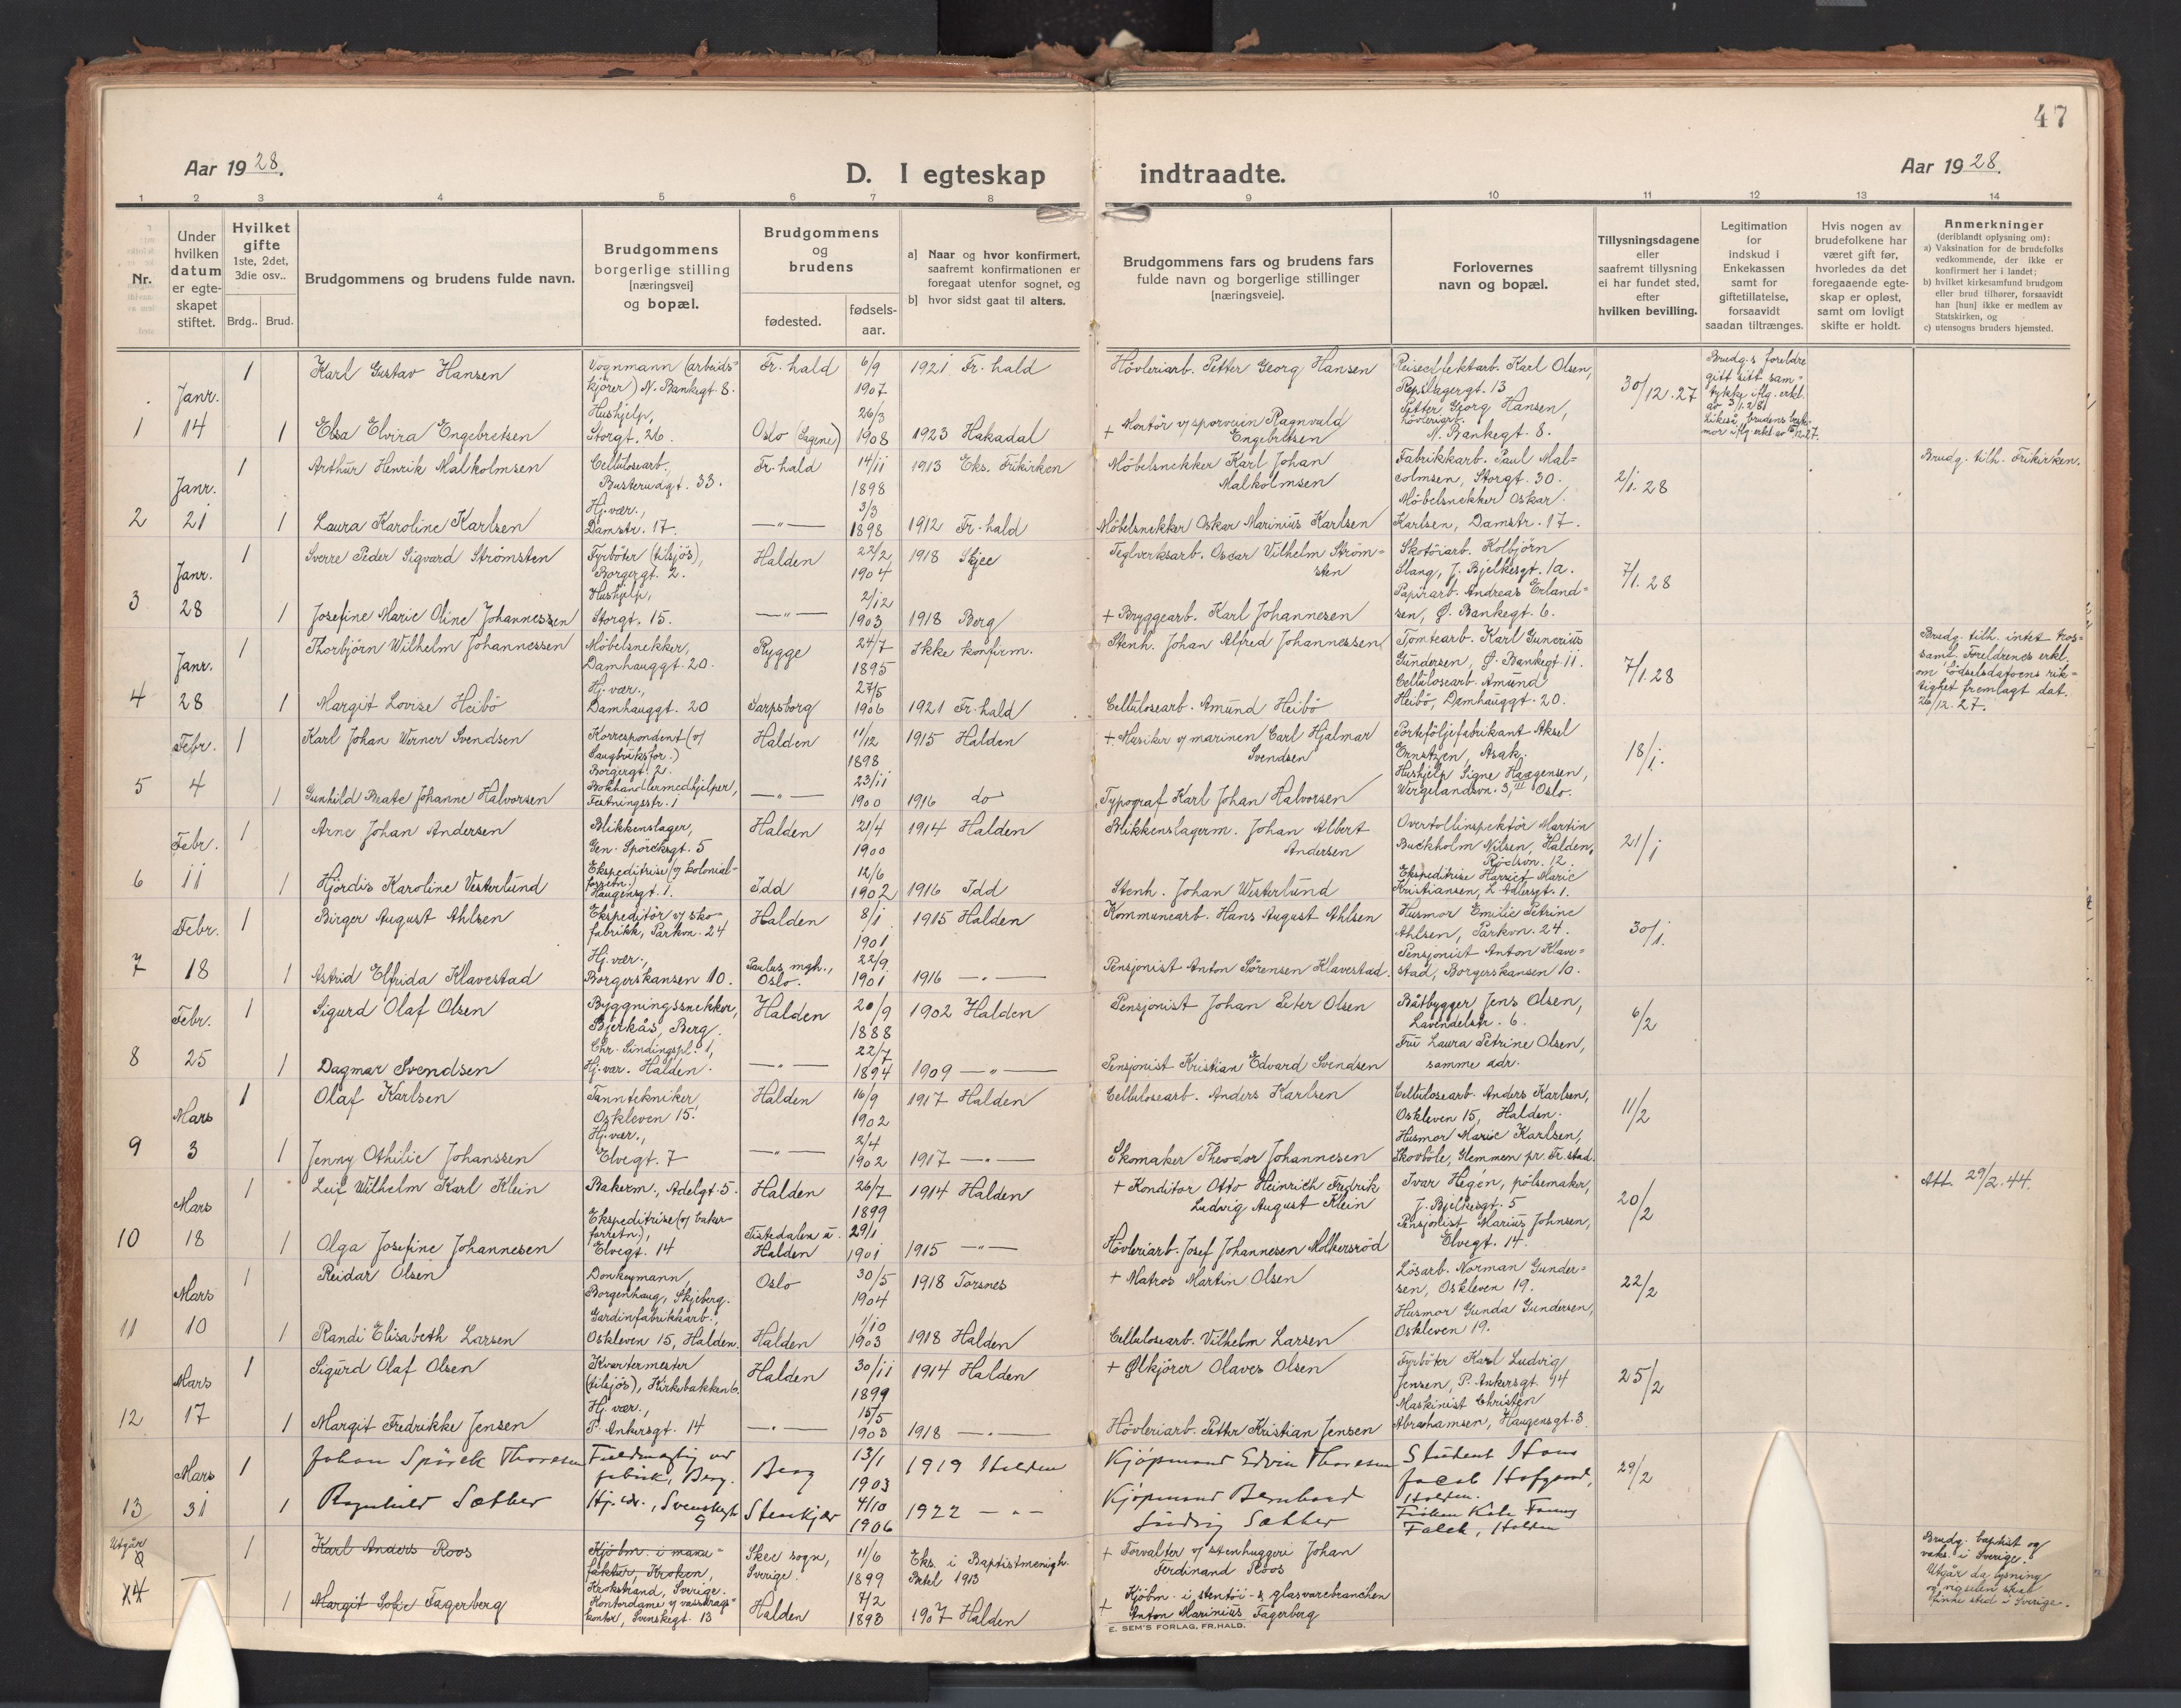 47
Aar 1928.
D. I egteskap indtraadte.
Aar 1928.
1 2 3 4 5 6 7 8 9 10 11 12 13 14
Nr.
Under hvilken datum er egteskapet stiftet.
Hvilket gifte
1ste, 2det, 3die osv..
Brdg.. Brud.
Brudgommens og brudens fulde navn.
Brudgommens borgerlige stilling [næringsvei] og bopæl.
Brudgommens og brudens
fødested.
fødsels-aar.
a] Naar og hvor konfirmert, saafremt konfirmationen er foregaat utenfor sognet, og
b] hvor sidst gaat til alters.
Brudgommens fars og brudens fars fulde navn og borgerlige stillinger [næringsveie].
Forlovernes navn og bopæl.
Tillysningsdagene eller saafremt tillysning ei har fundet sted, efter hvilken bevilling.
Legitimation for indskud i Enkekassen samt for giftetillatelse, forsaavidt saadan tiltrænges.
Hvis nogen av brudefolkene har været gift før, hvorledes da det foregaaende egteskap er opløst, samt om lovligt skifte er holdt.
Anmerkninger
(deriblandt oplysning om):
a) Vaksination for de brudefolks vedkommende, der ikke er konfirmert her i landet;
b) hvilket kirkesamfund brudgom eller brud tilhører, forsaavidt han [hun] ikke er medlem av Statskirken, og
c) utensogns bruders hjemsted.
1 Janr. 14
1 Karl Gustav Hansen
Vognmann (arbeidskjører) N. Bankegt 8.
Fr.hald 6/9 1907 1921 Fr.hald
Høvleriarb. Petter Georg Hansen
Karl Olsen, Repslagergt. 13
Petter Georg Hansen, høvleriarb. N. Bankegt. 8.
30/12.27
Brudg.s foreldre gitt sitt samtykke iflg. erkl. av 3/1.28.
1 Elsa Elvira Engebretsen
Hushjelp, Storgt. 26.
Oslo (Sagene) 26/3 1908 1923 Hakadal
+ Kontör v/ sporveien Ragnvald Engebretsen
2 Janr. 21
1 Arthur Henrik Malkolmsen
Cellulosearb., Busterudgt. 33.
Fr.hald 14/11 1898 1913 Eks. Frikirken
Møbelsnekker Karl Johan Malkolmsen
Fabrikkarb. Paul Malcolmsen, Storgt. 30.
Møbelsnekker Oskar Karlsen, Damstr. 17.
2/1.28
Brudg. tilh. Frikirken.
1 Laura Karoline Karlsen
Hj.vær., Damstr. 17.
—"— 3/3 1898 1912 Fr.hald
Møbelsnekker Oskar Marinius Karlsen
3 Janr. 28
1 Sverre Peder Sigvard Strømsten
Fyrböter (tilsjös), Borgergt. 2.
Halden 22/2 1904 1918 Skjee
Teglverksarb. Oscar Vilhelm Strömsten
Skotöiarb. Kolbjörn Slang, J. Bjelkesgt. 1a.
Papirarb. Andreas Erlandsen, Ø. Bankegt. 6.
7/1.28
1 Josefine Marie Oline Johannessen
Hushjelp, Storgt. 15.
—"— 2/12 1903 1918 Berg
+ Bryggearb. Karl Johannesen
4 Janr. 28
1 Thorbjörn Wilhelm Johannessen
Møbelsnekker, Damhauggt. 20.
Rygge 24/7 1895 Ikke konfirm.
Stenh. Johan Alfred Johannessen
Tomtearb. Karl Gunerius Gundersen, Ø. Bankegt. 11.
Cellulosearb. Amund Heibö, Damhauggt. 20.
7/1.28
Brudg. tilh. intet trossamf. Foreldrenes erkl. om födselsdatoens riktighet fremlagt dat. 26/12.27.
1 Margit Lovise Heibö
Hj.vær., Damhauggt. 20
Sarpsborg 27/5 1906 1921 Fr.hald
Cellulosearb. Amund Heibö
5 Febr. 4
1 Karl Johan Werner Svendsen
Korrespondent (v/ Saugbruksfor.) Borgergt. 2.
Halden 11/12 1898 1915 Halden
+ Musiker v/ marinen Carl Hjalmar Svendsen
Porteföljefabrikant Aksel Ernstzen, Asak.
Hushjelp Signe Haagensen, Wergelandsvn. 3, III Oslo.
18/1.
1 Gunhild Beate Johanne Halvorsen
Bokhandlermedhjelper, Festningsstr. 1
—"— 23/11 1900 1916 do
Typograf Karl Johan Halvorsen
6 Febr. 11
1 Arne Johan Andersen
Blikkenslager, Gen. Spörcksgt. 5
Halden 21/4 1900 1914 Halden
Blikkenslagerm. Johan Albert Andersen
Overtollinspektör Martin Buckholm Nilsen, Halden, Rödsvn. 12.
Ekspeditrise Harriet Marie Kristiansen, L. Adlersgt. 1.
21/1
1 Hjördis Karoline Vesterlund
Ekspeditrise (v/ kolonialforretn.) Haugensgt. 1.
Idd 12/6 1902 1916 Idd
Stenh. Johan Westerlund
7 Febr. 18
1 Birger August Ahlsen
Ekspeditör v/ skofabrikk, Parkvn. 24
Halden 8/1 1901 1915 Halden
Kommunearb. Hans August Ahlsen
Husmor Emilie Petrine Ahlsen, Parkvn. 24.
Pensjonist Anton Klavestad, Borgerskansen 10.
30/1.
1 Astrid Elfrida Klavestad
Hj.vær., Borgerskansen 10.
Paulus mgh., Oslo. 22/9 1901 1916 —"—
Pensjonist Anton Sörensen Klavestad.
8 Febr. 25
1 Sigurd Olaf Olsen
Bygningssnekker, Bjerkås, Berg.
Halden 20/9 1888 1902 Halden
Pensjonist Johan Peter Olsen
Båtbygger Jens Olsen, Lavendelstr. 6.
Fru Laura Petrine Olsen, samme adr.
6/2
1 Dagmar Svendsen
Chr. Sindingspl. 1, Hj.vær. Halden.
—"— 22/7 1894 1909 —"—
Pensjonist Kristian Edvard Svendsen
9 Mars 3
1 Olaf Karlsen
Tanntekniker, Oskleven 15.
Halden 16/9 1902 1917 Halden
Cellulosearb. Anders Karlsen
Cellulosearb. Anders Karlsen, Oskleven 15, Halden.
Husmor Marie Karlsen, Skovböle, Glemmen pr. Fr.stad.
11/2
1 Jenny Othilie Johanssen
Hj.vær., Elvegt. 7
—"— 2/4 1902 1917 —"—
Skomaker Theodor Johannesen
10 Mars 18
1 Leif Wilhelm Karl Klein
Bakerm., Adelgt. 5.
Halden 26/7 1899 1914 Halden
+ Konditor Otto Heinrich Fredrik Ludvig August Klein
Ivar Hegén, pølsemaker, J. Bjelkesgt. 5
Pensjonist Marius Johnsen, Elvegt. 14.
20/2
Att. 29/2.44.
1 Olga Josefine Johannesen
Ekspeditrise (v/ bakerforretn), Elvegt. 14
Tistedalen u. Halden 29/1 1901 1915 —"—
Høvleriarb. Josef Johannesen Molkersröd
11 Mars 10
1 Reidar Olsen
Donkeymann, Borgenhaug, Skjeberg.
Oslo 30/5 1904 1918 Torsnes
+ Matros Martin Olsen
Lösarb. Norman Gundersen, Oskleven 19.
Husmor Gunda Gundersen, Oskleven 19.
22/2
1 Randi Elisabeth Larsen
Gardinfabrikkarb., Oskleven 15, Halden.
Halden 1/10 1903 1918 Halden
Cellulosearb. Vilhelm Larsen
12 Mars 17
1 Sigurd Olaf Olsen
Kvartermester (tilsjös), Kirkebakken 6.
Halden 30/11 1899 1914 Halden
+ Ølkjörer Olaves Olsen
Fyrböter Karl Ludvig Jensen, P. Ankersgt. 14
Maskinist Christen Abrahamsen, Haugensgt. 3.
25/2
1 Margit Fredrikke Jensen
Hj.vær., P. Ankersgt. 14
—"— 15/5 1903 1918 —"—
Høvleriarb. Petter Kristian Jensen
13 Mars 31
1 Johan Spörck Thoresen
Berg.
Berg 13/1 1903 1919 Halden
Kjöpmand Edvin Thoresen
Student Hans Jacob Hofgaard, Halden.
Fröken Fanny Falck, Halden
29/2
1 Ragnhild Sæther
Hj.vær., Svenskegt. 9
Stenkjær 4/10 1906 1922 —"—
Kjöpmand Bernhard Ludvig Sæther
Utgår
14 —
1 Karl Anders Roos
Kjöbm. i manufaktur, Kroken, Krokstrand, Sverige.
Skee sogn, Sverige. 11/6 1899 Eks. i Baptistmenigh. Betel 1913
+ Forvalter v/ stenhuggeri Johan Ferdinand Roos
Brudg. baptist og vaks. i Sverige.
Utgår da lysning og vigselen skal finne sted i Sverige.
1 Margit Sofie Fagerberg
Kontordame v/ vassdragskontor, Svenskegt. 13
Halden 7/2 1893 1907 Halden
+ Kjöbm. i stentöi- & glasvarebranchen Anton Marinius Fagerberg
E. SEM'S FORLAG, FR.HALD.